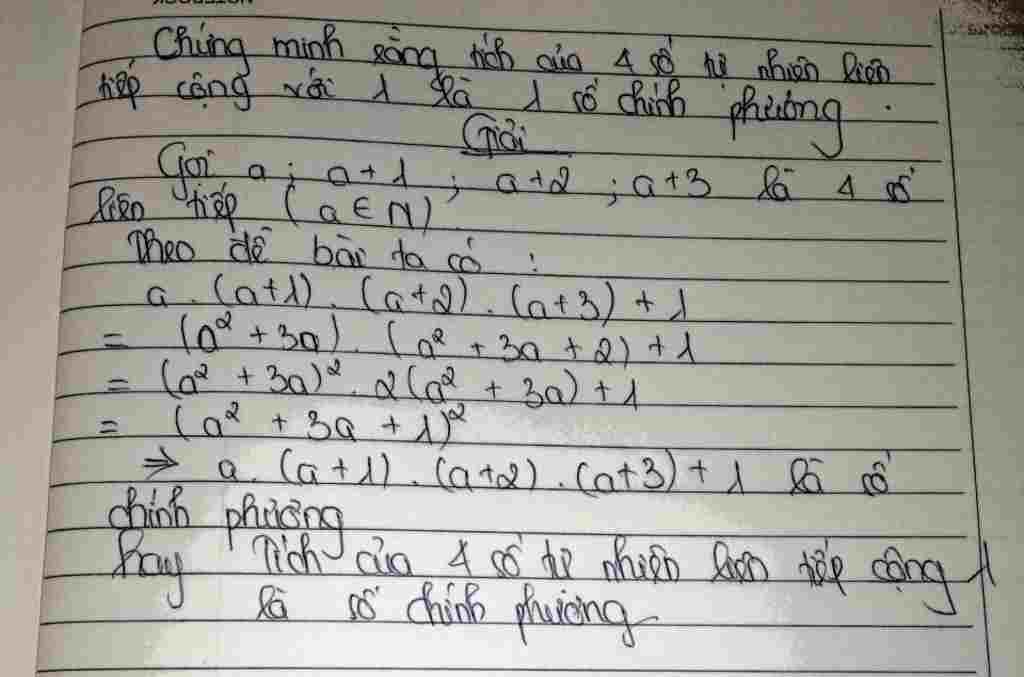 Chứng minh rằng tích của 4 số tự nhiên liên
tiếp cộng với 1 là 1 số chính phương.
Giải
Gọi a; a+1; a+2; a+3 là 4 số
liên tiếp (a ∈ N)
Theo đề bài ta có:
a.(a+1).(a+2).(a+3)+1
= (a² + 3a).(a² + 3a + 2) + 1
= (a² + 3a)² . 2(a² + 3a) + 1
= (a² + 3a + 1)²
⇒ a.(a+1).(a+2).(a+3)+1 là số
chính phương
hay Tích của 4 số tự nhiên liên tiếp cộng 1
là số chính phương